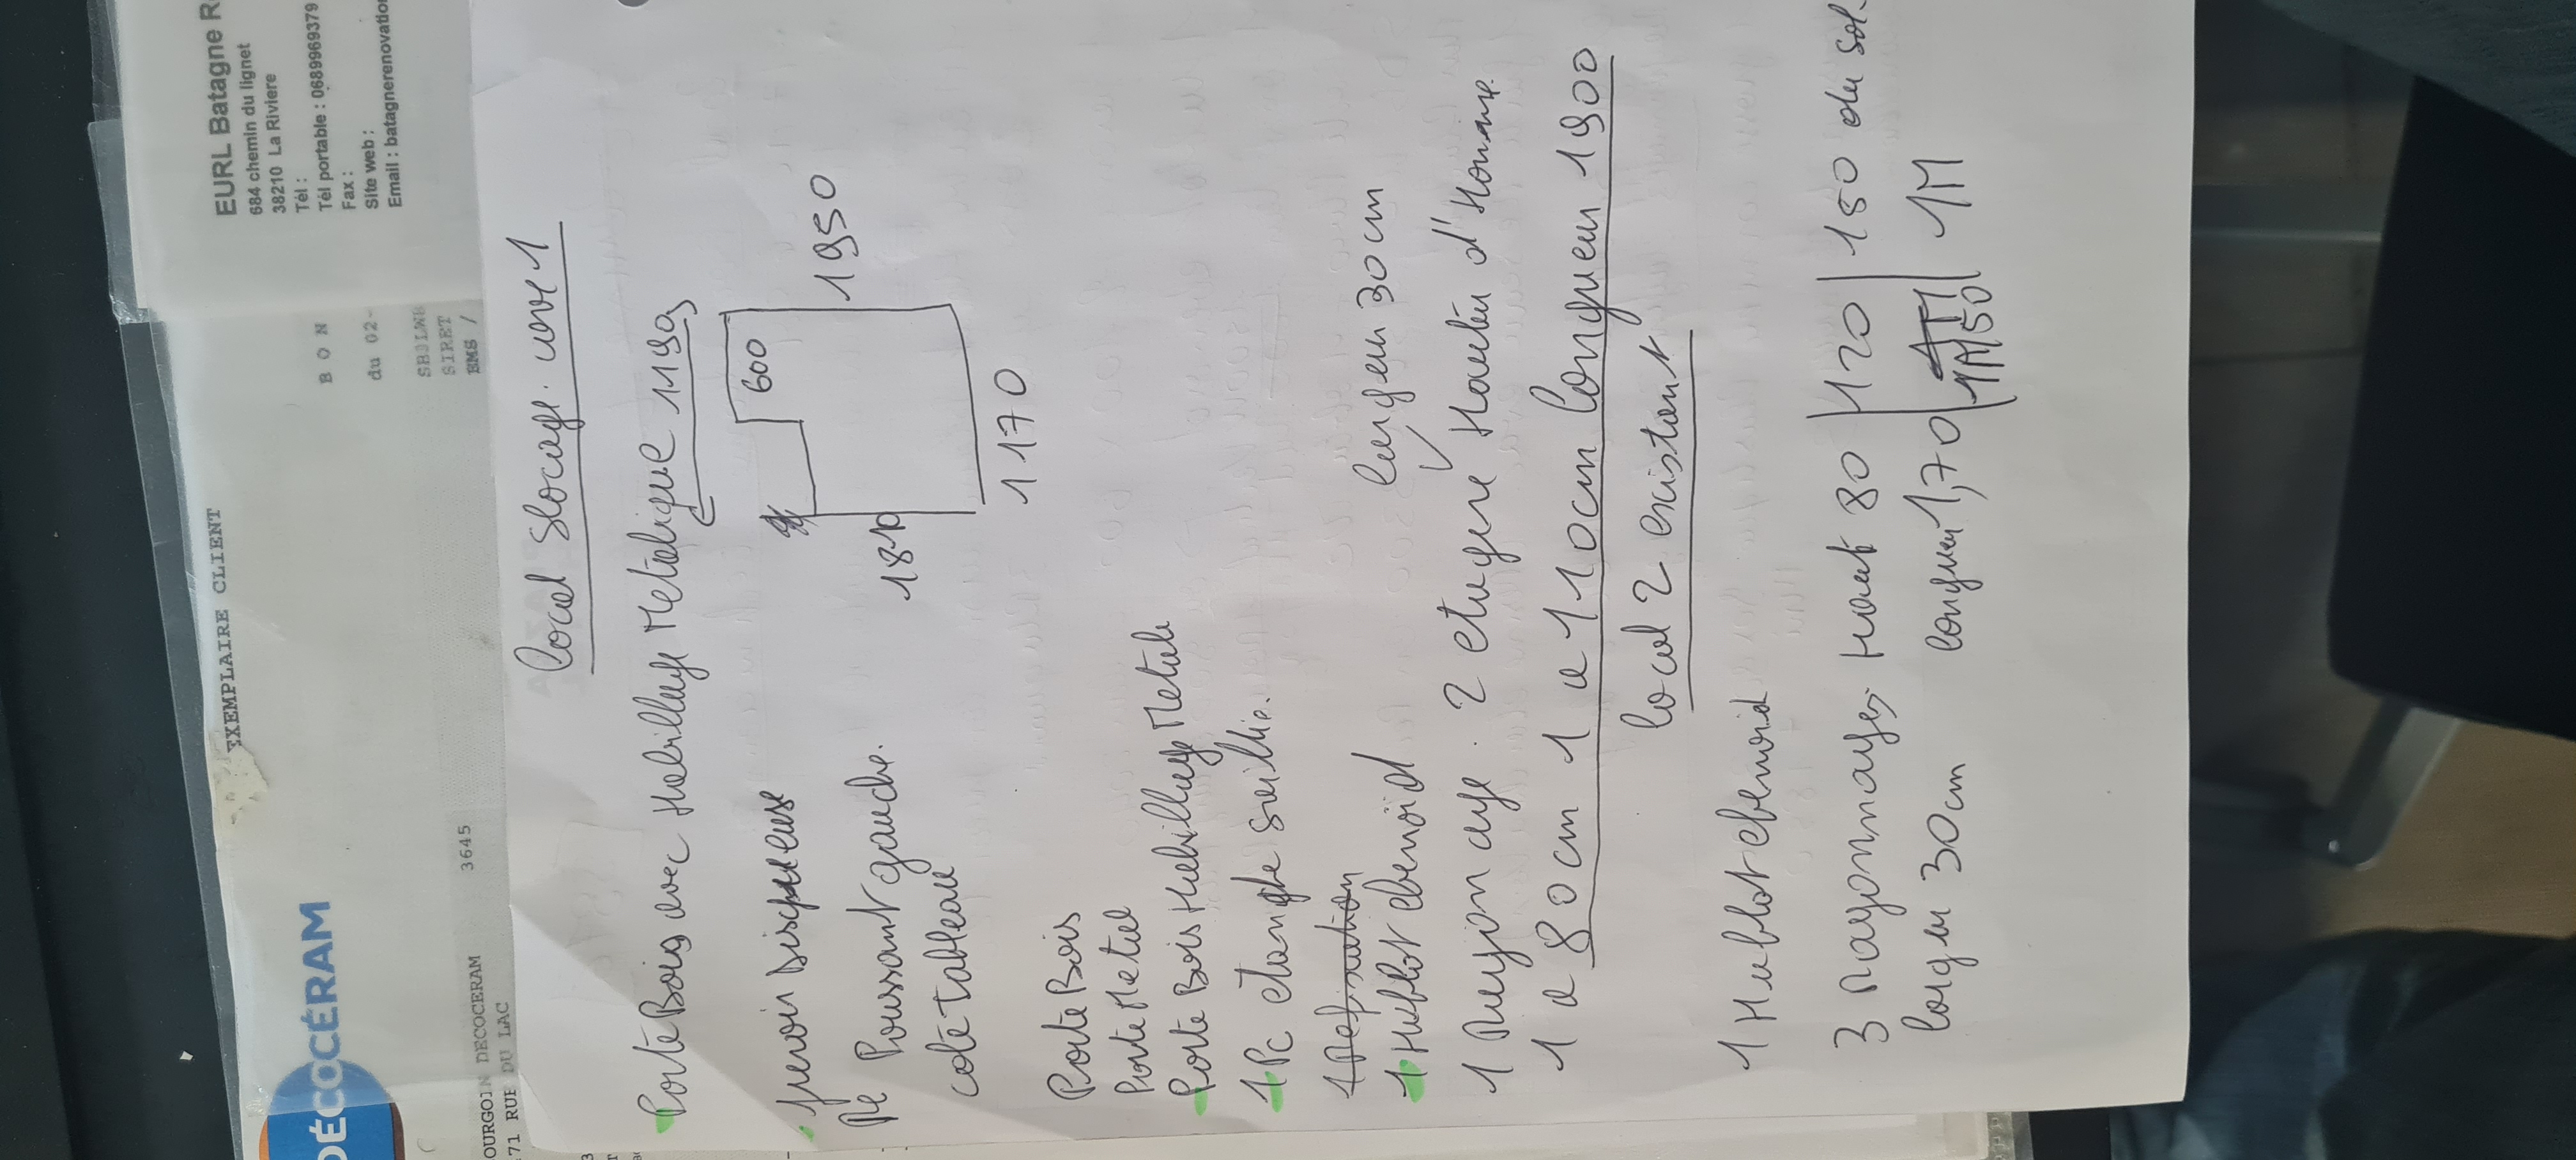 EURL Batagne R
684 chemin du lignet
38210 La Riviere
Tél :
Tél portable : 0689969379
Fax :
Site web :
Email : batagnerenovation
DÉCOCÉRAM
EXEMPLAIRE CLIENT
BON
du 02-
SIRET
EMS /
3645
OURGOIN DECOCERAM
71 RUE DU LAC
local Stocage
Porte Bois avec Habillage Metalique
600
1950
1810
1170
prevoir
Poussant gauche.
coté tableau
Porte Bois
Porte Metal
Porte Bois Habillage Metale
1 Pc etanche
1 Hublot ebenoïd
largeur 30 cm
1 Rayonage. 2 etagere Hauteur d'Homme
1 a 80 cm 1 a 110 cm longueur 1900
local 2 existant
1 Hublot ebenoid
3 Rayonnages Haut 80 | 120 | 150 du sol.
largeur 30 cm longueur 1,70 | 1M50 | 1M